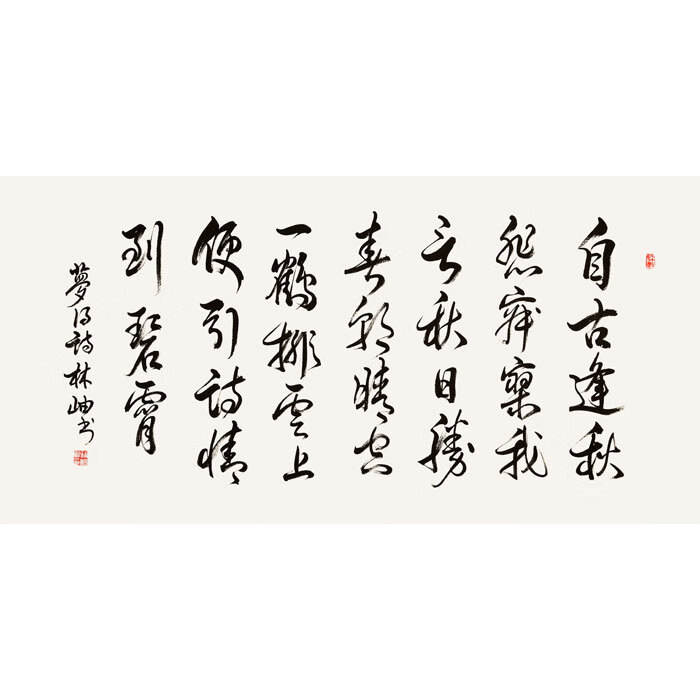 自古逢秋
悲寂寥我
言秋日勝
春朝晴空
一鶴排雲上
便引詩情
到碧霄
夢得詩林岫書